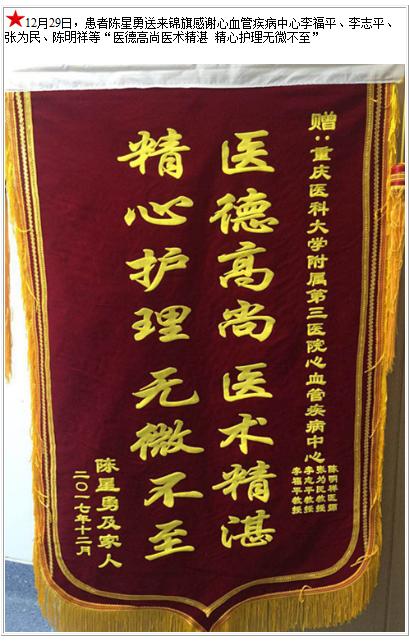 ★12月29日，患者陈星勇送来锦旗感谢心血管疾病中心李福平、李志平、
张为民、陈明祥等“医德高尚医术精湛 精心护理无微不至”
赠：重庆医科大学附属第三医院心血管疾病中心
陈明祥医师
张为民教授
李志平教授
李福平教授
医德高尚 医术精湛
精心护理 无微不至
陈星勇及家人
二〇一七年十二月